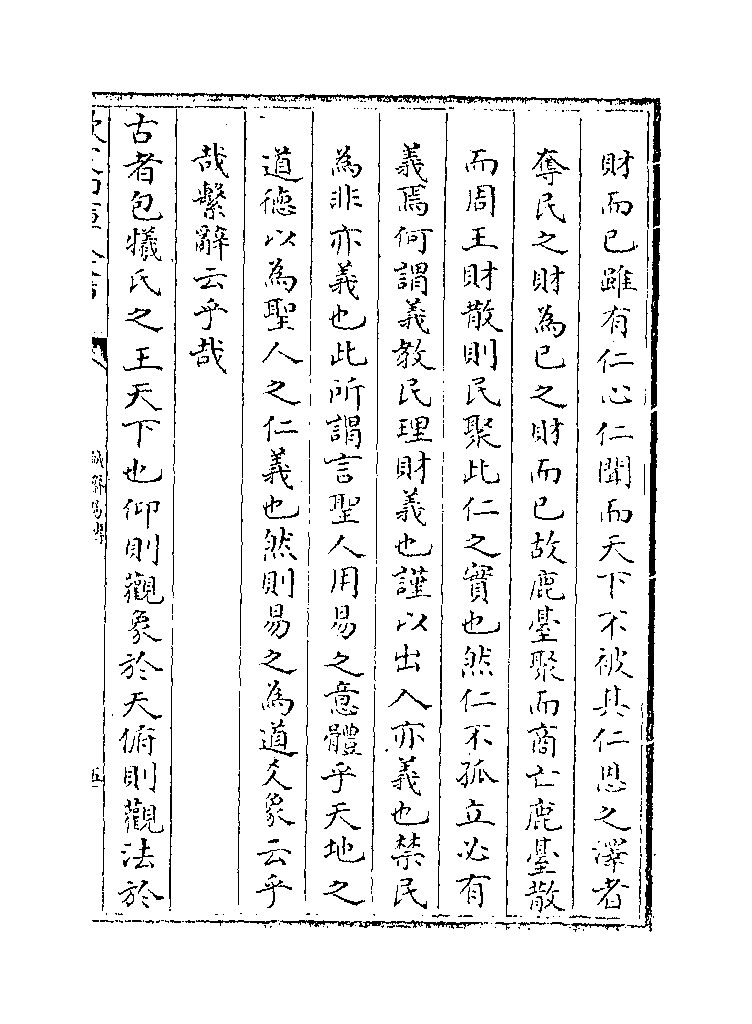 財而已雖有仁心仁聞而天下不被其仁恩之澤者
奪民之財為已之財而已故鹿臺聚而商亡鹿臺散
而周王財散則民聚此仁之實也然仁不孤立必有
義焉何謂義教民理財義也謹以出入亦義也禁民
為非亦義也此所謂言聖人用易之意體乎天地之
道德以為聖人之仁義也然則易之為道爻象云乎
哉繫辭云乎哉
古者包犧氏之王天下也仰則觀象於天俯則觀法於